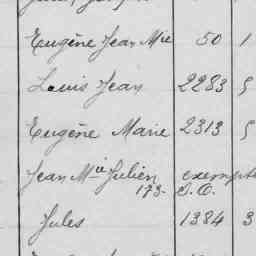 Eugène Jean Mie 50 1
Louis Jean 2283 5
Eugène Marie 2313 5
Jean Mie Julien exempté
173. S.O.
Jules 1384 3